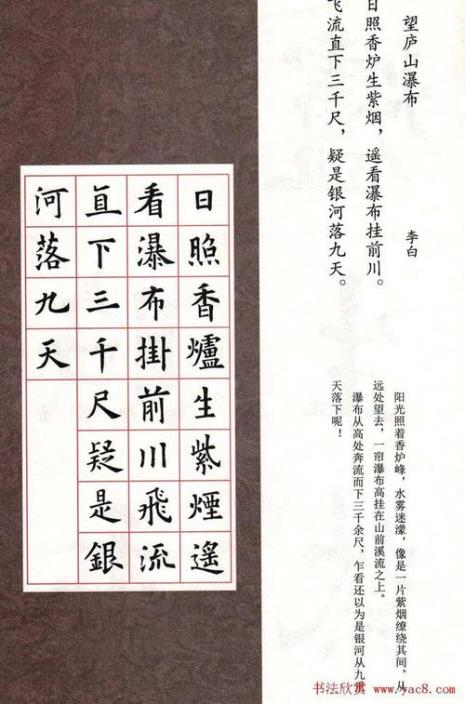 望庐山瀑布
李白
日照香炉生紫烟，遥看瀑布挂前川。
飞流直下三千尺，疑是银河落九天。
阳光照着香炉峰，水雾迷濛，像是一片紫烟缭绕其间。从
远处望去，一帘瀑布高挂在山前溪流之上。
瀑布从高处奔流而下三千余尺，乍看还以为是银河从九重
天落下呢！
日照香爐生紫煙遙
看瀑布掛前川飛流
直下三千尺疑是銀
河落九天
书法欣赏 www.yac8.com